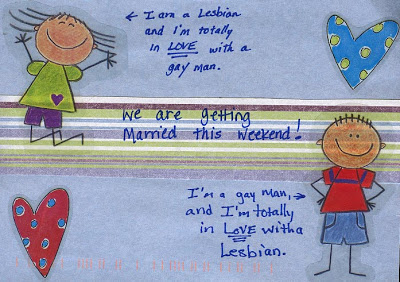 ← I am a Lesbian
and I'm totally
in LOVE with a
gay man.
We are getting
Married this weekend!
I'm a gay man, →
and I'm totally
in LOVE with a
Lesbian.